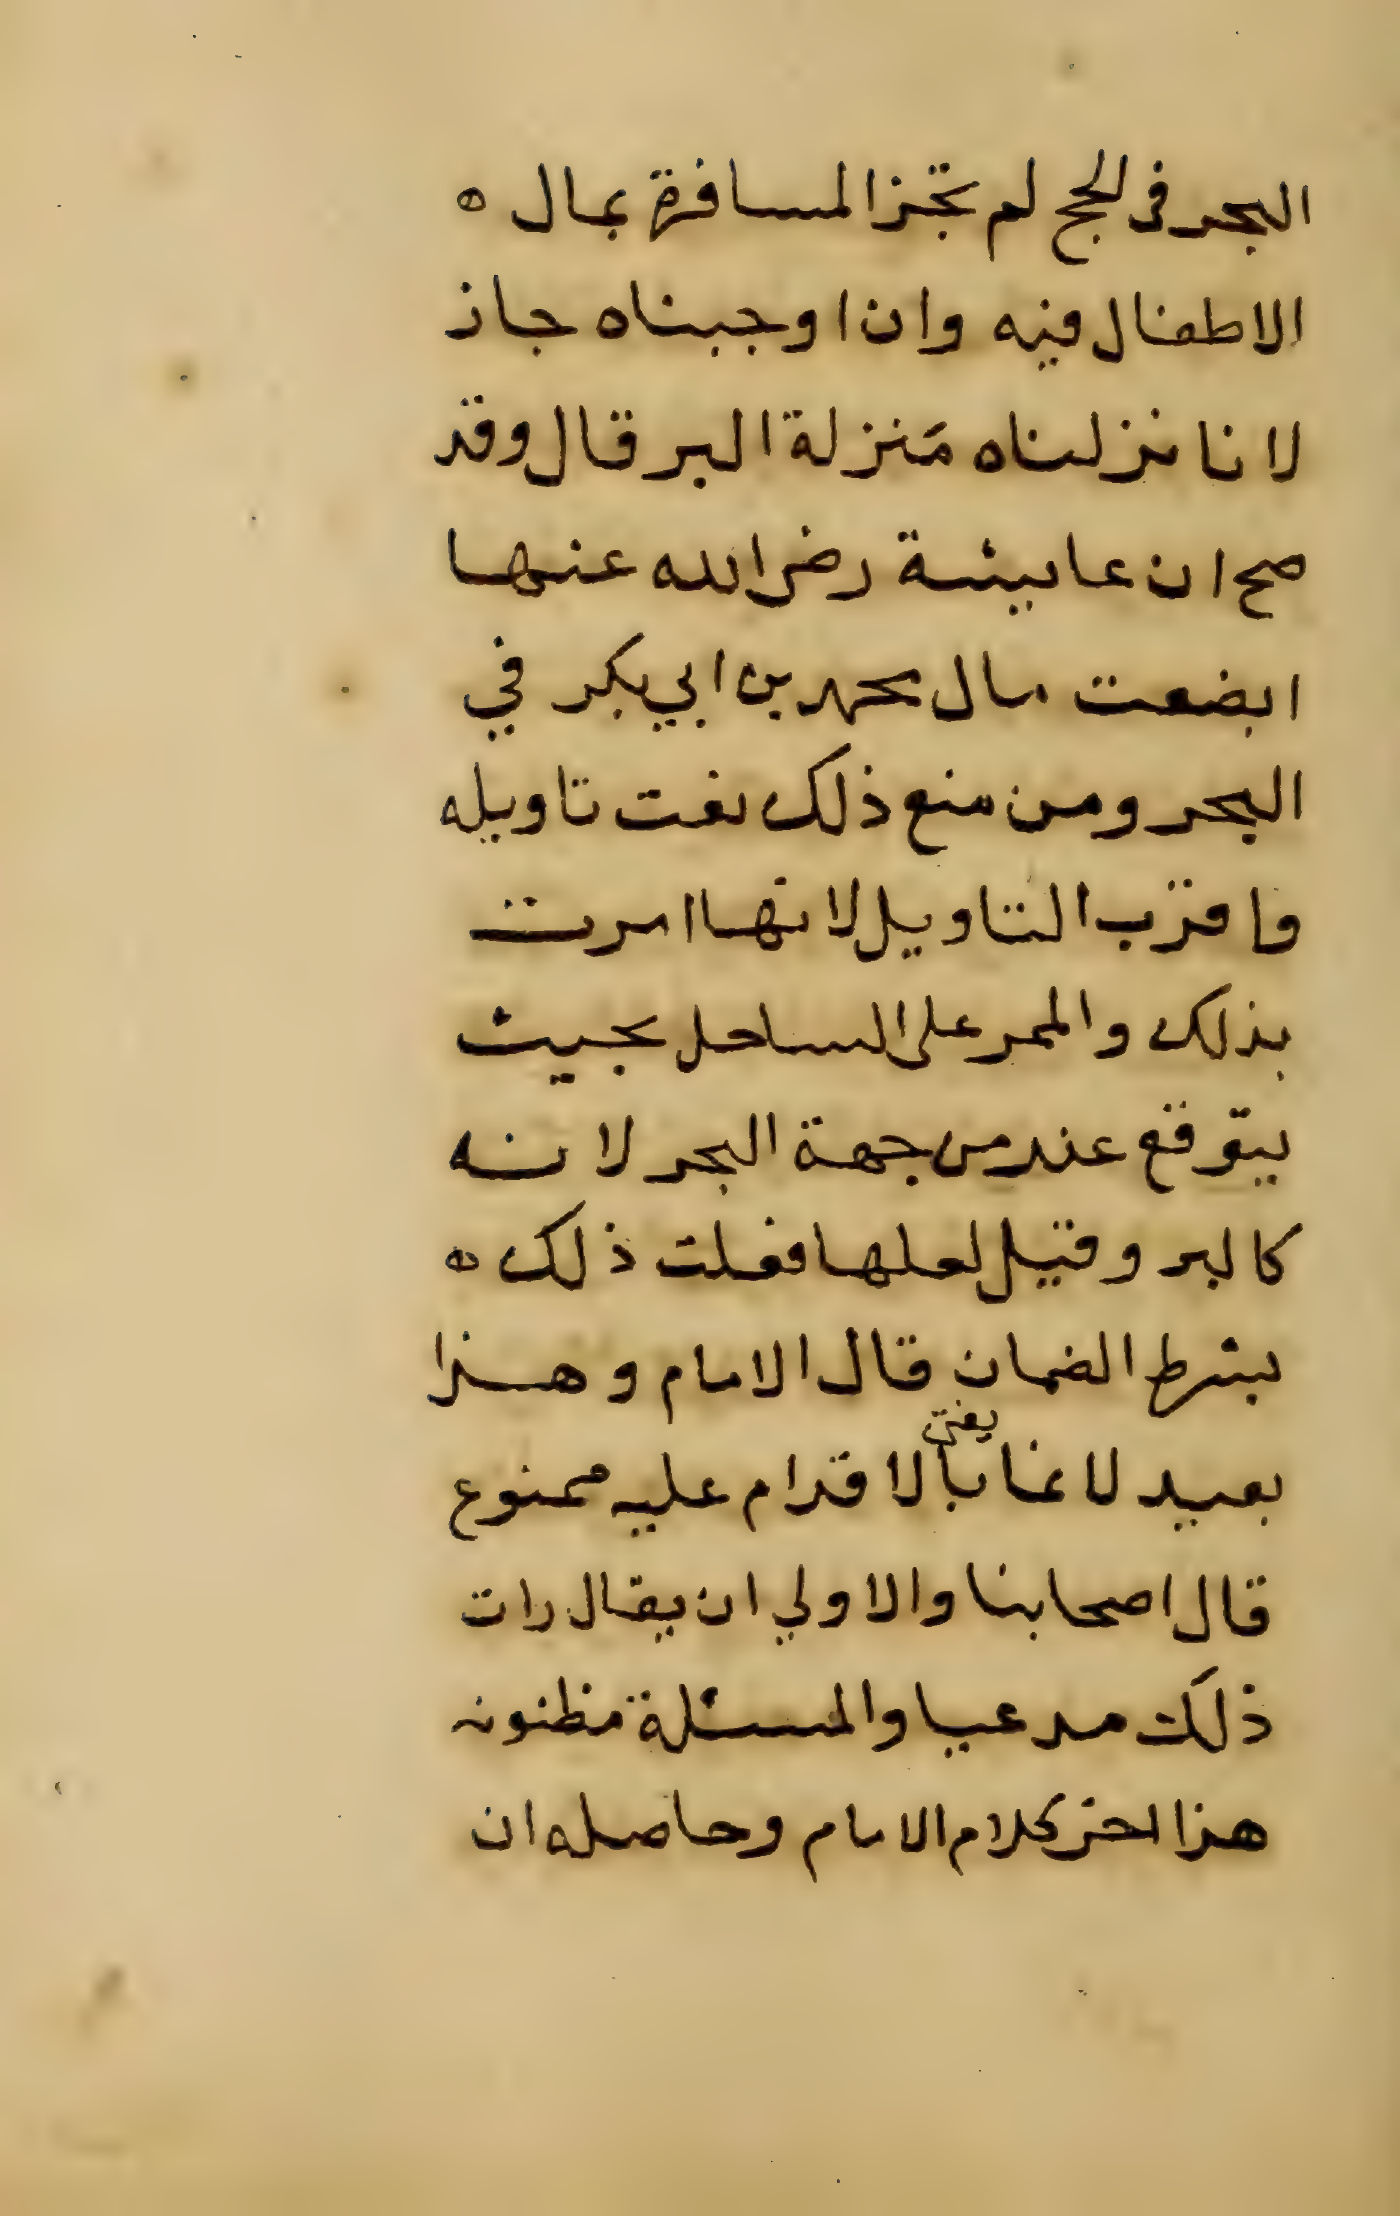 البحر في الحج لم تجز المسافرة بمال ه
الاطفال فيه وان اوجبناه جاز
لانا نزلناه مَنزلة البر قال وقد
صح ان عايشة رضي الله عنها
ابضعت مال محمد بن ابي بكر في
البحر ومن منع ذلك نفت تاويله
واقرب التاويل لانها امرت
بذلك والممر على الساحل بحيث
يتوقع عند من جهة البحر لانه
كالبر وقيل لعلها فعلت ذلك ه
بشرط الضمان قال الامام وهذا
يفتي
بعيد لا نما بالاقدام عليه ممنوع
قال اصحابنا والاولي ان يقال رات
ذلك مدعيا والمسئلة مظنونه
هذا اخر كلام الامام وحاصله ان